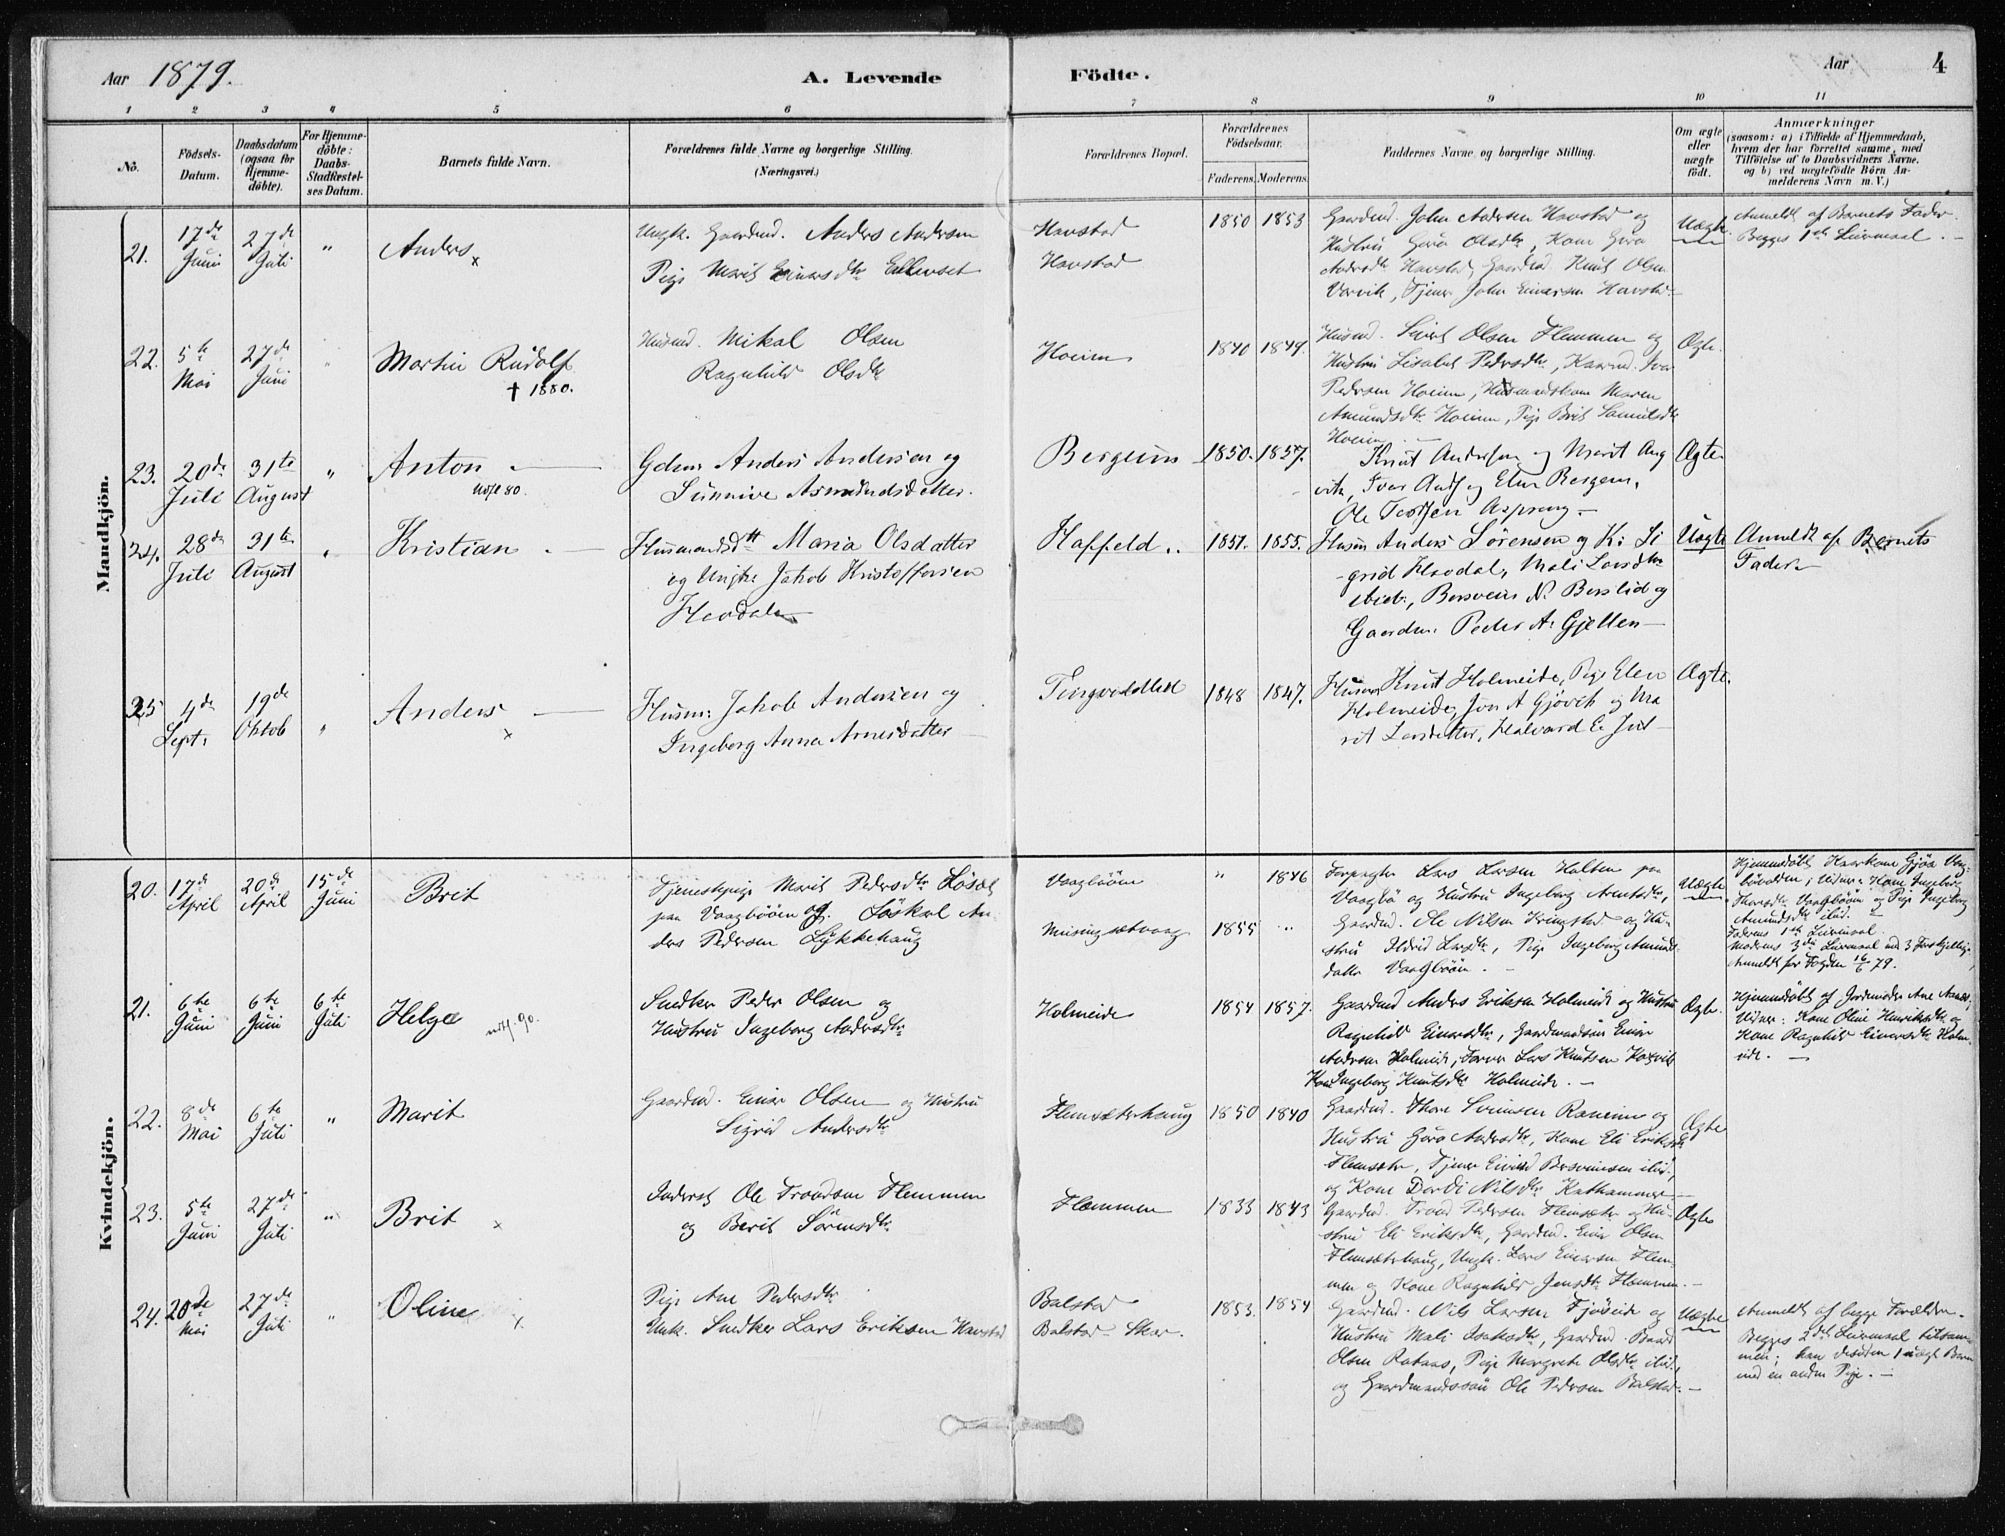 Aar 1879. A. Levende Födte. Aar 4
1 2 3 4 5 6 7 8 9 10 11
No.
Födsels-Datum.
Daabsdatum (ogsaa for Hjemme-döbte).
For Hjemme-döbte: Daabs-Stadfæstel-ses Datum.
Barnets fulde Navn.
Forældrenes fulde Navne og borgerlige Stilling. (Næringsvei.)
Forældrenes Bopæl.
Forældrenes Födselsaar.
Faderens. Moderens.
Faddernes Navne og borgerlige Stilling.
Om ægte eller uægte födt.
Anmærkninger
(saasom: a) i Tilfælde af Hjemmedaab,
hvem der har forrettet samme, med
Tilföielse af to Daabsvidners Navne.
og b) ved uægtefödte Börn An-
melderens Navn m. V.)
Mandkjön.
21. 17de Juni 27de Juli " Anders x
Ungk. Gaardmd. Anders Andersen
Pige Marit Einarsdtr Ellenset
Havstad
Havstad
1850 1853
Gaardmd. John Andersen Havstad og
Hustru Guro Olsdtr, Kone Guro
Andersdtr Havstad, Gaardmd Knut Olsen
Vorvik, Tjener John Einarsen Havstad
Uægte
Anmeldt af Barnets Fader.
Begges 1ste Leiermaal. —
22. 5te Mai 27de Juni " Martin Rudolf
† 1880.
Husmd. Mikal Olsen
Ragnhild Olsdtr
Hoeim
1840 1849.
Husmd. Sivert Olsen Flemmen og
Hustru Lisabet Pedersdtr, Gaardmd. Iver
Pedersen Hoeim, Husmandskone Maren
Amundsdtr Hoeim, Pige Brit Samuelsdtr
Hoeim. —
Ægte.
23. 20de Juli 31te August " Anton —
Gdm Anders Andersen og
Sunnive Asmundsdatter.
Bergeim 1850. 1857.
Knut Andersen og Marit Ang
vik, Iver Ands og Elen Bergem,
Ole Torsten Aspeng —
Ægte
24. 28de Juli 31te August " Kristian —
Husmandsdtt Maria Olsdatter
og Ungk. Jakob Kristoffersen
Hovdale
Haffeld .. 1851. 1855.
Husm Anders Sörensen og K: Si
grid Hovdal, Mali Larsdtr
ibid., Bersvein N. Berslid og
Gaardm. Peder A. Gjellen —
Uægte
Anmeldt af Barnets
Fader
25 4de Sept. 19de Oktob " Anders — x
Husm: Jakob Andersen og
Ingeborg Anna Arnesdatter —
Tingvoldlid 1848 1847.
Husm Knut Holmeide, Pige Elen
Holmeide, Iver A Gjövik og Ma
rit Larsdatter, Halvard E. Jul —
Ægte.
Kvindekjön.
20. 17de April 20de April 15de Juni Brit
Tjenestepige Marit Pedersdtr Lösæt
paa Vaagböen og. Löskarl An
ders Pedersen Lykkehaug
Vaagböen
Musingsetvaag
" 1846
1855 "
Forpagter Lars Larsen Holten paa
Vaagbö og Hustru Ingeborg Arntsdtr,
Gaardmd. Ole Nilsen Kringstad og Hu-
stru Ildrid Larsdtr, Pige Ingeborg Amunds
datter Vaagböen. —
Uægte
Hjemmedöbt Gjöa
Vidner: Kone Ingeborg
Thoresdtr Vaagböen og Pige Ingeborg
Amundsdtr ibid. —
Faderens 1ste Leiermaal.
Moderens 3die Leiermaal med 3 Forskjellige.
Anmeldt for Fogden 16/6 79.
21. 6te Juni 6te Juni 6te Juli Helge
Snedker Peder Olsen og
Hustru Ingeborg Andersdtr
Holmeide 1854 1857.
Gaardmd Anders Eriksen Holmeide og Hustru
Ragnhild Einarsdtr, Gaardmandssön Einar
Andersen Holmeide, Lars Knutsen Koksvik
Kone Ingeborg Knutsdtr Holmeide. —
Ægte.
Hjemmedöbt af Jordemoder Ane
Vidner: Kone Oline Henriksdtr og
Kone Ragnhild Einarsdtr Holm-
eide. —
22. 8de Mai 6te Juli " Marit
Gaardmd. Einar Olsen og Hustru
Sigrid Andersdtr
Flemsæterhaug 1850 1840
Gaardmd. Thore Svensen Raneim og
Hustru Guro Andersdtr, Kone Eli Eriksdtr
Flemsæter, Tjener Eivind Bersveinsen ibid,
og Kone Dordi Nilsdtr Kathammer —
Ægte
23. 5te Juni 27de Juli " Brit x
Inderst Ole Trondsen Flemmen
og Berit Sörensdtr
Flemmen 1833 1843
Gaardmd. Trond Pedersen Flemsæter og Hu-
stru Eli Eriksdtr, Gaardmd. Einar Olsen
Flemsæterhaug, Ungk. Lars Einarsen Flem-
men og Kone Ragnhild Jensdtr Flemmen. —
Ægte
24. 20de Mai 27de Juli " Oline x
Pige Ane Pedersdtr
Ungk. Snedker Lars Eriksen Havstad
Balstad
Balstad Skar.
1853. 1854
Gaardmd. Nils Larsen Fjöseide og
Hustru Mali Isaksdtr, Gaardmd. Baard
Olsen Rotaas, Pige Margrete Olsdtr ibid.,
og Gaardmandssön Ole Pedersen Balstad. —
Uægte
Anmeldt af begge Forældre.
Begges 2det Leiermaal tilsam-
men; han desuden 1 uægte Barn
med en anden Pige. —